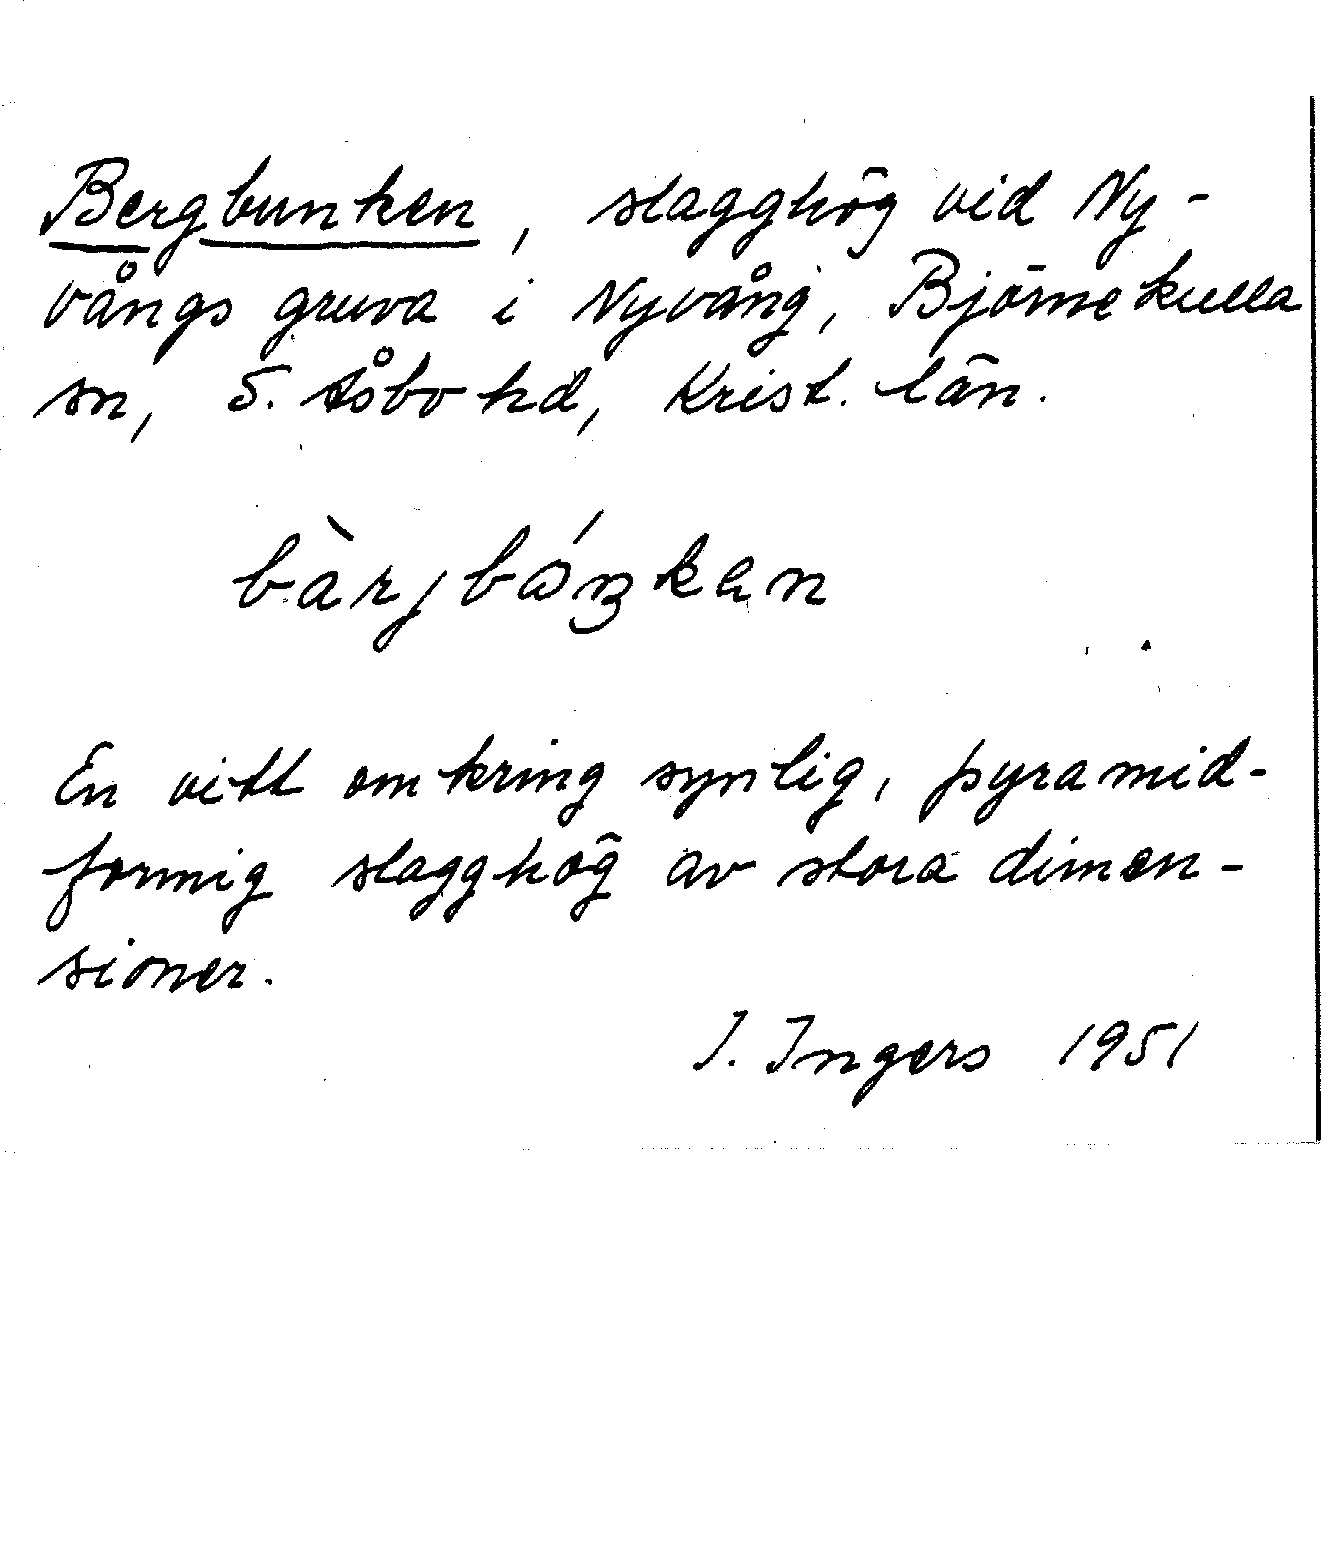 Bergbunken, slagghög vid Ny-
vångs gruva i Nyvång, Björnekulla
sn, S. Åsbo hd, Krist. län.
bàrjbáŋkan
En vitt omkring synlig, pyramid-
formig slagghög av stora dimen-
sioner.
I. Ingers 1951